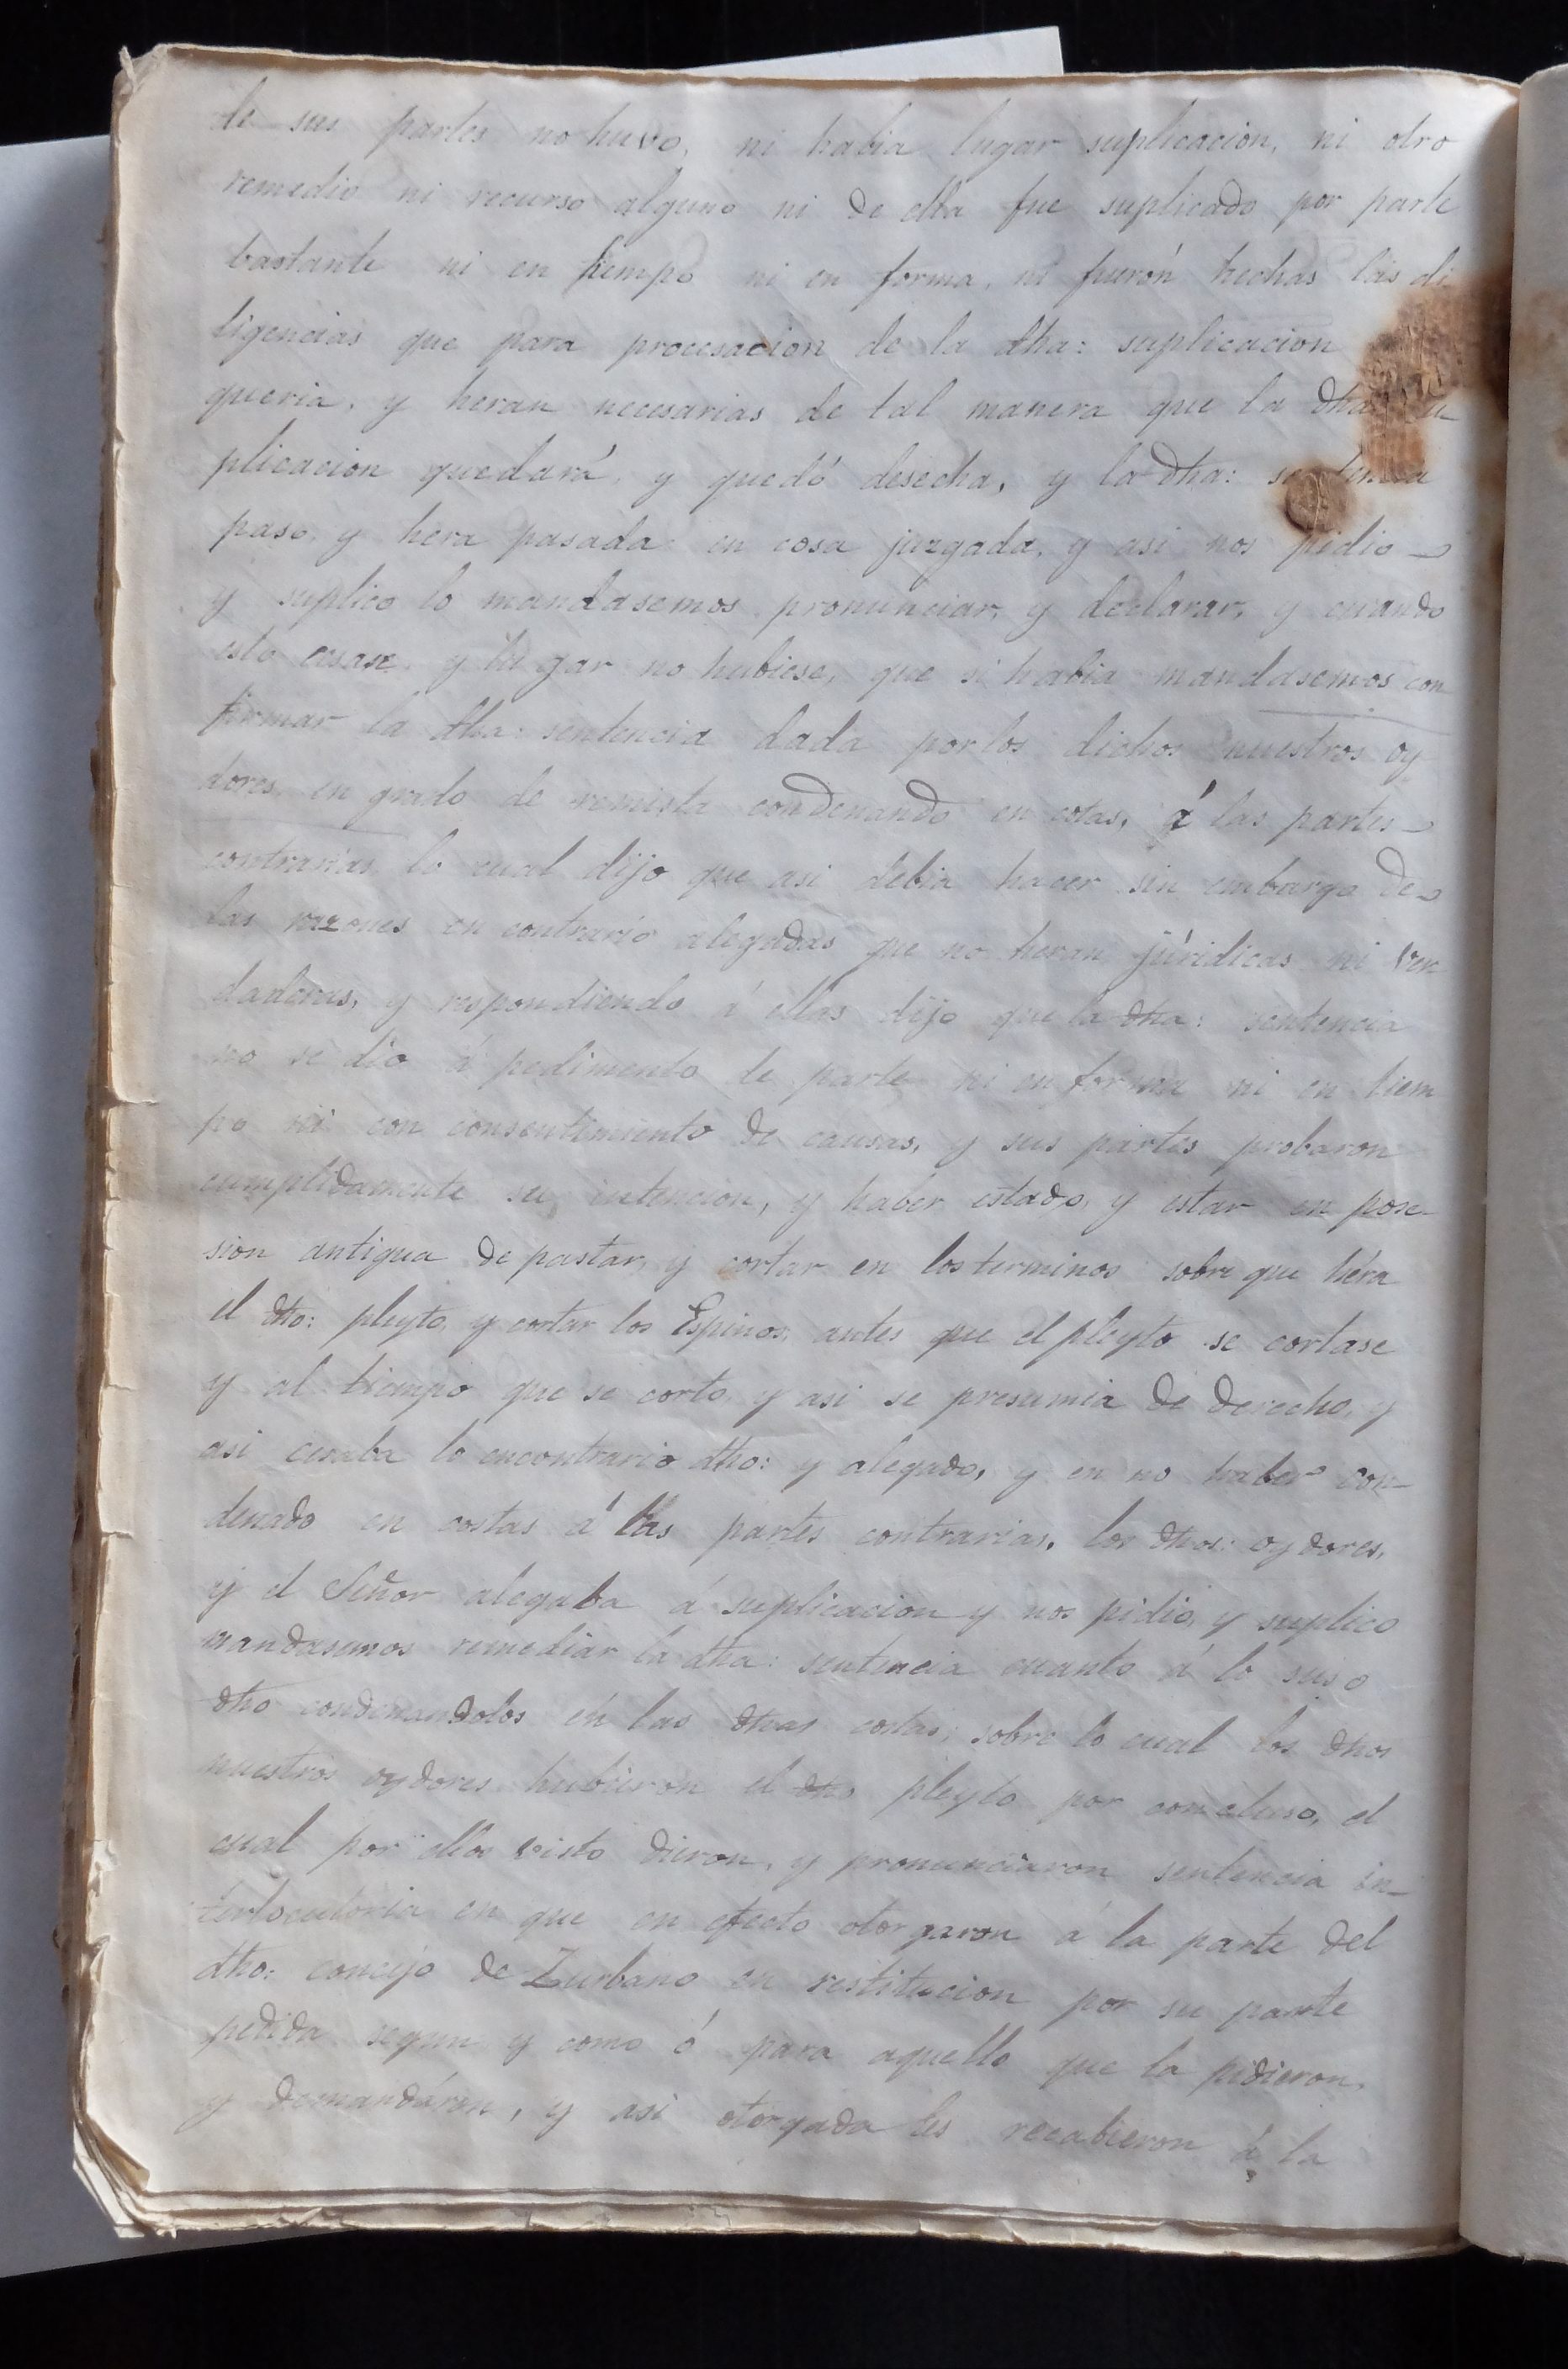 de sus partes no huvo, ni habia lugar suplicacion, ni otro
remedio ni recurso alguno ni de ella fue suplicado por parte
bastante ni en tiempo ni en forma, ni fuerón hechas las di
ligencias que para procesacion de la dha: suplicacion
queria, y heran necesarias de tal manera que la dha
plicacion quedará, y quedó desecha, y la dha: sentencia
paso, y hera pasada en cosa juzgada, y asi nos pidio
y suplico lo mandasemos pronunciar, y declarar, y cuando
esto cesase y lugar no hubiese, que si habia mandasemos con
firmar la dha: sentencia dada por los dichos nuestros oy
dores en grado de remista condenando en cotas, á las partes
contrarias lo cual dijo que asi debia hacer sin embargo de
las razones en contrario alegadas que no heran júridicas ni ver
daderas, y respondiendo á ellas dijo que la dha: sentencia
no se dio á pedimento de parte ni en forma ni en tiem
po ni con consentimiento de causas, y sus partes probaron
cumplidamente su intencion, y haber estado, y estar en pose-
sion antigua de pastar, y cortar en los terminos sobre que héra
el dho: pleyto, y cortar los Espinos, antes que el pleyto se cortase
y al tiempo que se corto, y asi se presumia de derecho, y
asi cesaba lo encontrario dho: y alegado, y en no haber con-
denado en costas á las partes contrarias, los dhos: oydores,
y el Señor alegaba á suplicacion y nos pidio, y suplico
mandasemos remediar la dha: sentencia cuanto á lo suso
dho condenandolos en las dhas costas; sobre lo cual los dhos
nuestros oydores hubieron el dho pleyto por concluso, el
cual por ellos visto dieron, y pronunciaron sentencia in-
terlocutoria en que en efecto otorgaron á la parte del
dho: concejo de Zurbano en restitucion por su parte
pedida segun y como ó para aquello que la pidieron,
y demandáron, y asi otorgada les recabieron á la